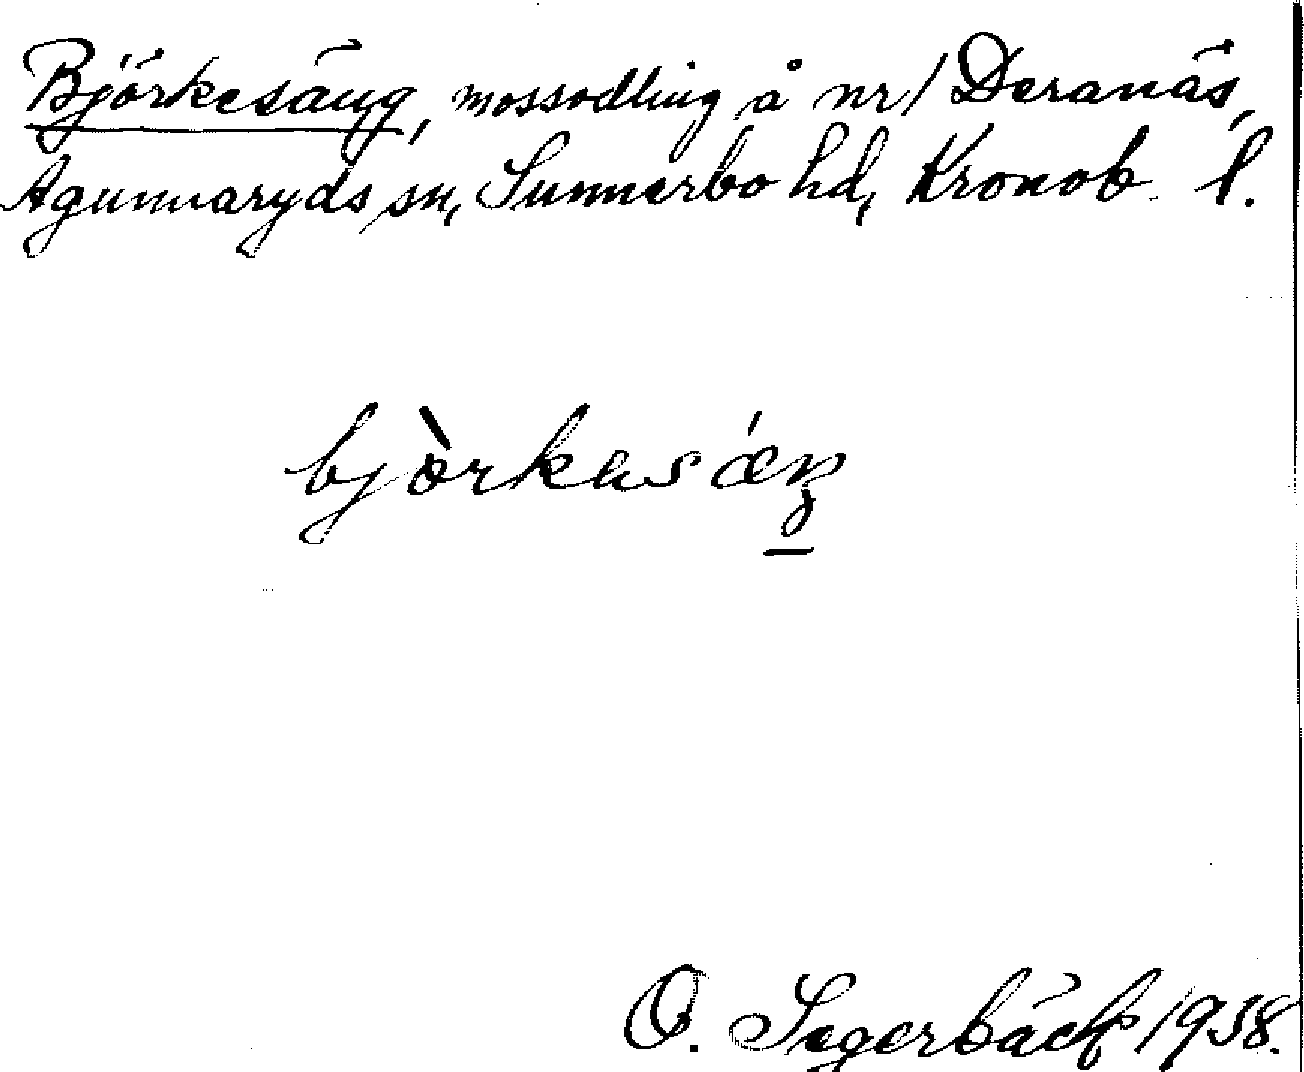 Björkesäng, mossodling å nr 1 Deranäs,
Agunnaryds sn, Sunnerbo hd, Kronob. l.
bjòrkəsǽŋ
O. Segerbäck 1938.